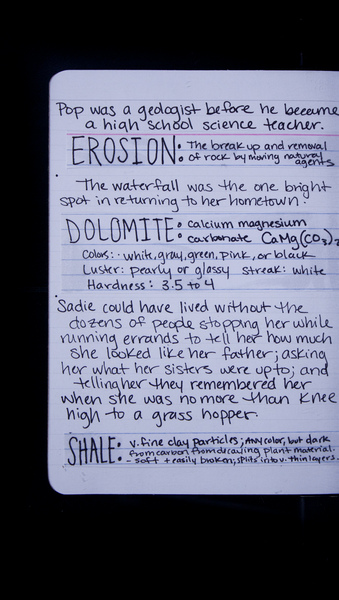 Pop was a geologist before he became
a high school science teacher.
EROSION: The break up and removal
of rock by moving natural agents
The waterfall was the one bright
spot in returning to her hometown.
DOLOMITE: calcium magnesium
carbonate CaMg(CO3)2
Colors: white, gray, green, pink, or black
Luster: pearly or glassy streak: white
Hardness: 3.5 to 4
Sadie could have lived without the
dozens of people stopping her while
running errands to tell her how much
she looked like her father; asking
her what her sisters were up to; and
telling her they remembered her
when she was no more than knee
high to a grass hopper.
SHALE: v. fine clay particles; ANY color, but dark
from carbon from decaying plant material.
- soft + easily broken; splits into v. thin layers.